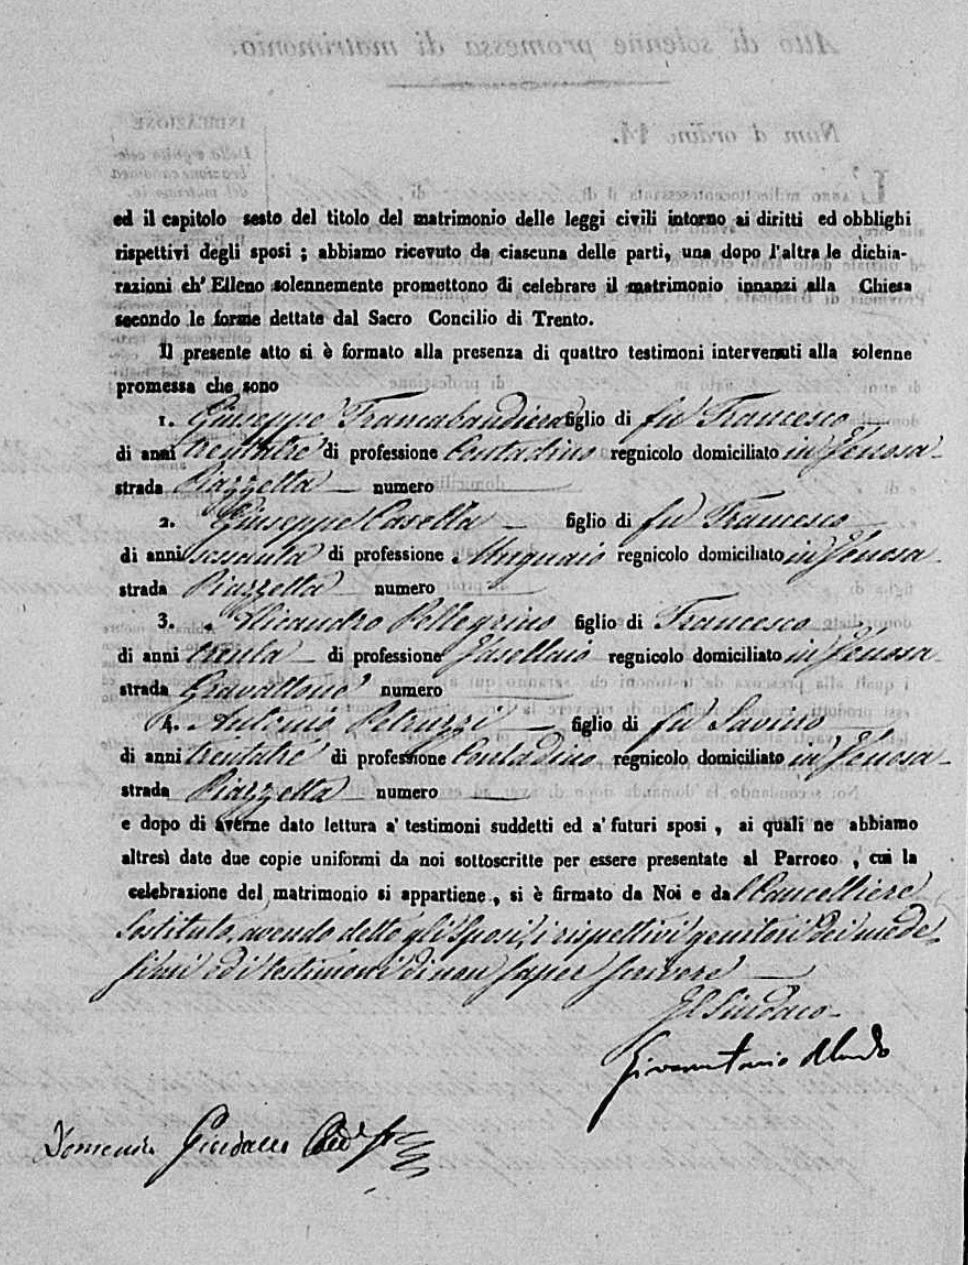 ed il capitolo sesto del titolo del matrimonio delle leggi civili intorno ai diritti ed obblighi
rispettivi degli sposi ; abbiamo ricevuto da ciascuna delle parti, una dopo l'altra le dichia-
razioni ch' Elleno solennemente promettono di celebrare il matrimonio innanzi alla Chiesa
secondo le forme dettate dal Sacro Concilio di Trento.
Il presente atto si è formato alla presenza di quattro testimoni intervenuti alla solenne
promessa che sono
1. Giuseppe Francabandiera figlio di fu Francesco
di anni trentatre di professione Contadino regnicolo domiciliato in Venosa
strada Piazzetta numero
2. Giuseppe Casella figlio di fu Francesco
di anni sessanta di professione regnicolo domiciliato in Venosa
strada Piazzetta numero
3. Nicandro Pellegrino figlio di Francesco
di anni trenta di professione Vasellaio regnicolo domiciliato in Venosa
strada Gravattone numero
4. Antonio Petruzzi figlio di fu Savino
di anni trentatre di professione Contadino regnicolo domiciliato in Venosa
strada Piazzetta numero
e dopo di averne dato lettura a' testimoni suddetti ed a' futuri sposi , ai quali ne abbiamo
altresì date due copie uniformi da noi sottoscritte per essere presentate al Parroco , cui la
celebrazione del matrimonio si appartiene , si è firmato da Noi e dal Cancelliere
Sostituto, avendo detto gli Sposi, i rispettivi genitori dei mede-
simi ed i testimoni di non saper scrivere
Il Sindaco
Giovanni
Domenico